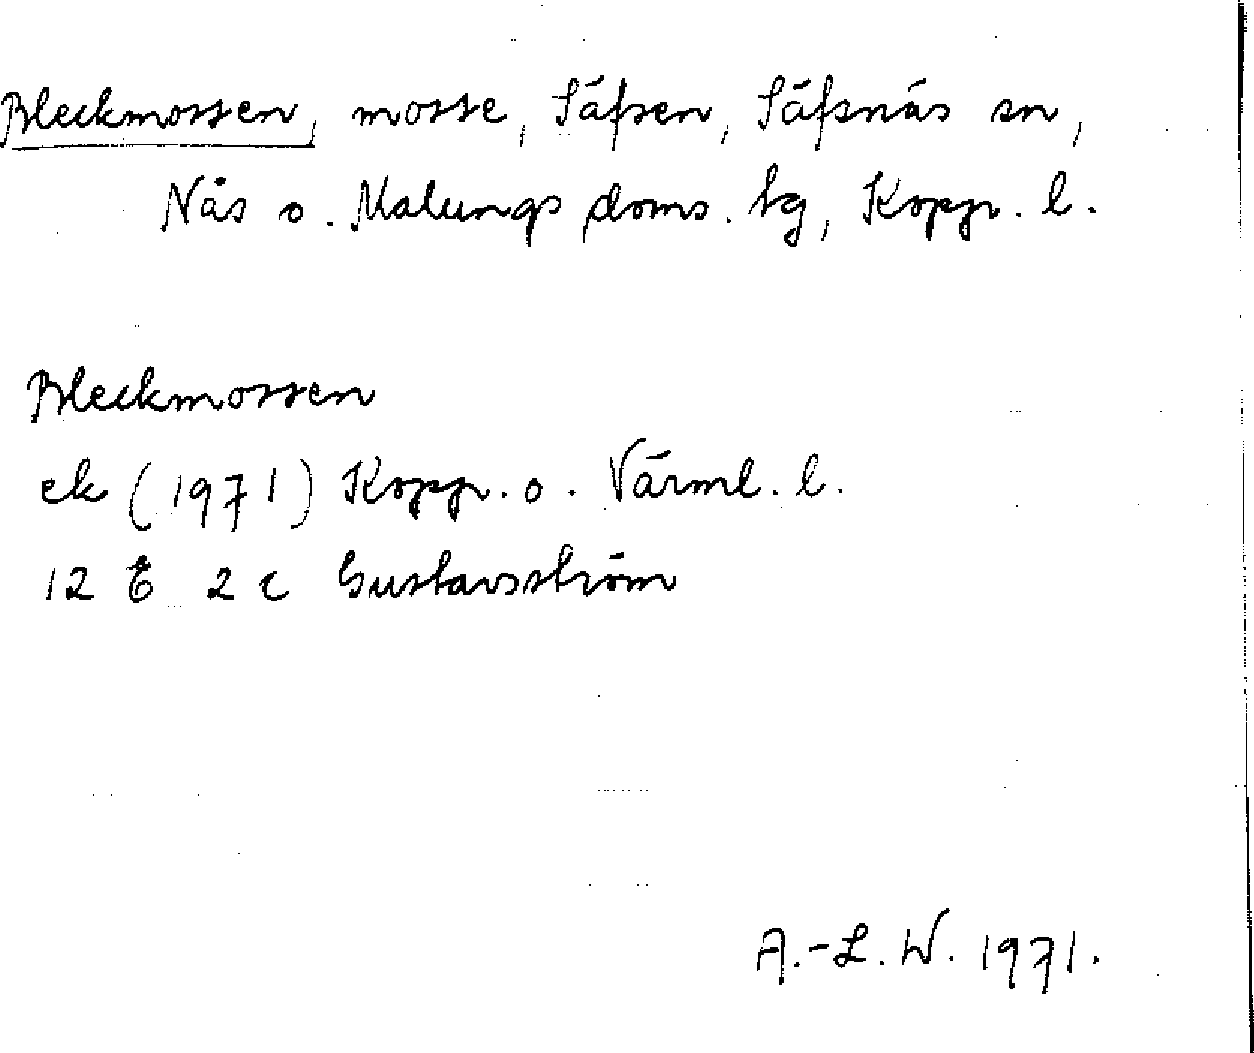 Bleckmossen, mosse, Säfsen, Säfsnäs sn,
Nås o. Malungs doms. tg, Kopp. l.
Bleckmossen
ek (1971) Kopp. o. Värml. l.
12 E 2 c Gustavsström
A.-L. W. 1971.